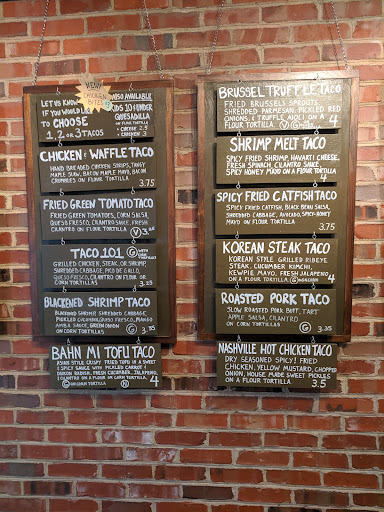 LET US KNOW
IF YOU WOULD LIKE
TO CHOOSE
1, 2, OR 3 TACOS
NEW!
CHICKEN
ALSO AVAILABLE
KIDS 10 & UNDER
QUESADILLA
ON FLOUR TORTILLA
• CHEESE 2.5
• CHICKEN 3
CHICKEN & WAFFLE TACO
HAND BREADED CHICKEN STRIPS, TANGY
MAPLE SLAW, BACON MAPLE MAYO, BACON
CRUMBLES ON FLOUR TORTILLA
3.75
FRIED GREEN TOMATO TACO
FRIED GREEN TOMATOES, CORN SALSA,
QUESO FRESCO, CILANTRO SAUCE, FRESH
CILANTRO ON FLOUR TORTILLA
V 3.25
TACO 101 G
GRILLED CHICKEN, STEAK, OR SHRIMP,
SHREDDED CABBAGE, PICO DE GALLO,
QUESO FRESCO, CILANTRO ON FLOUR OR
CORN TORTILLAS
3.25
BLACKENED SHRIMP TACO
BLACKENED SHRIMP, SHREDDED CABBAGE,
PICKLED CUCUMBER, QUESO FRESCO, MANGO
AMBA SAUCE, GREEN ONION
ON CORN TORTILLAS
G 3.75
BAHN MI TOFU TACO
ASIAN STYLE CRISPY FRIED TOFU IN A SWEET
& SPICY SAUCE WITH PICKLED CARROT &
DAIKON RADISH, FRESH CUCUMBER, JALAPENO,
& CILANTRO ON A FLOUR OR CORN TORTILLA.
G ON CORN TORTILLA V 4
BRUSSEL TRUFFLE TACO
FRIED BRUSSELS SPROUTS,
SHREDDED PARMESAN, PICKLED RED
ONIONS, & TRUFFLE AIOLI ON A
FLOUR TORTILLA. V G 4
SHRIMP MELT TACO
SPICY FRIED SHRIMP, HAVARTI CHEESE,
FRESH SPINACH, CILANTRO SAUCE,
SPICY HONEY MAYO ON FLOUR TORTILLA
4
SPICY FRIED CATFISH TACO
SPICY FRIED CATFISH, BLACK BEAN SALSA,
SHREDDED CABBAGE, AVOCADO, SPICY-HONEY
MAYO ON FLOUR TORTILLA
4
KOREAN STEAK TACO
KOREAN STYLE GRILLED RIBEYE
STEAK, CUCUMBER KIMCHI,
KEWPIE MAYO, FRESH JALAPENO
ON A FLOUR TORTILLA. G ON CORN 4
ROASTED PORK TACO
SLOW ROASTED PORK BUTT, TART
APPLE SALSA, CILANTRO
ON CORN TORTILLAS
G 3.25
NASHVILLE HOT CHICKEN TACO
DRY SEASONED SPICY! FRIED
CHICKEN, YELLOW MUSTARD, CHOPPED
ONION, HOUSE MADE SWEET PICKLES
ON A FLOUR TORTILLA 3.5